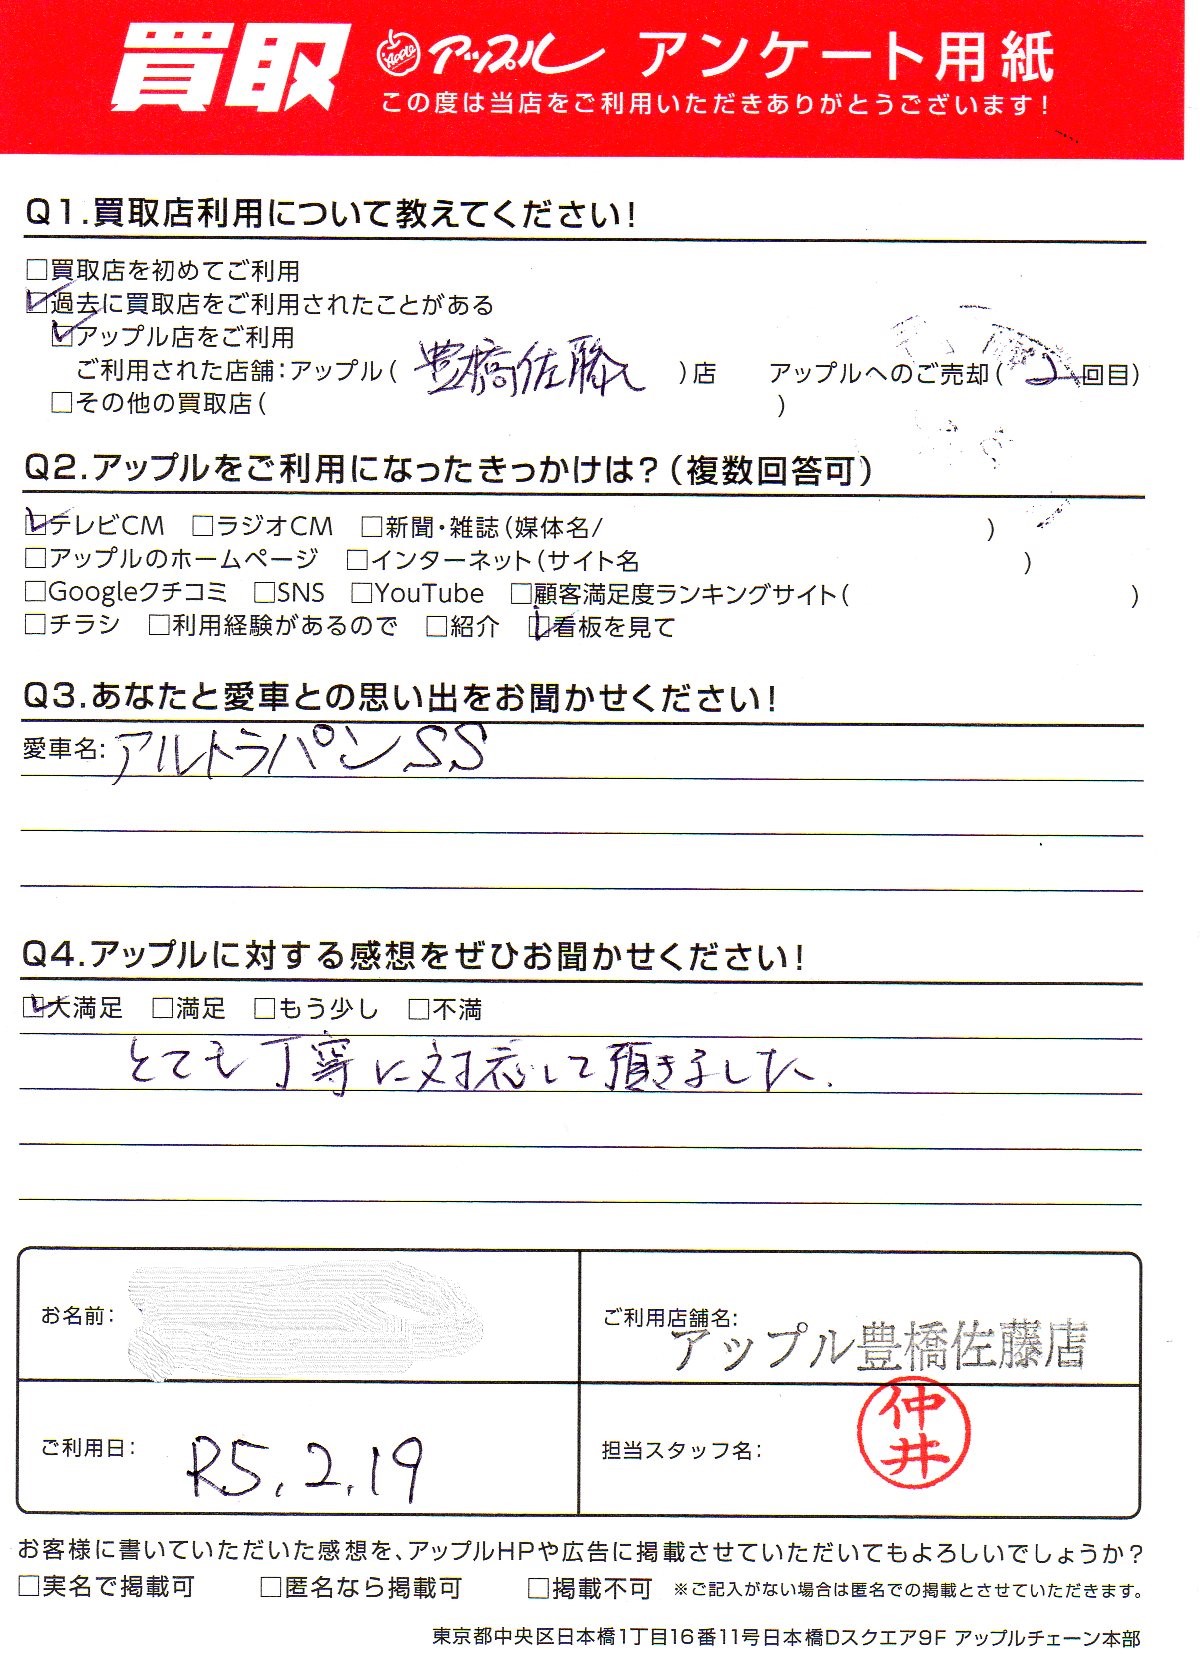 買取 Apple アップル アンケート用紙
この度は当店をご利用いただきありがとうございます！
Q1.買取店利用について教えてください！
□買取店を初めてご利用
☑過去に買取店をご利用されたことがある
☑アップル店をご利用
ご利用された店舗：アップル（ 豊橋佐藤 ）店 アップルへのご売却（ 2 回目）
□その他の買取店（ ）
Q2.アップルをご利用になったきっかけは？（複数回答可）
☑テレビCM □ラジオCM □新聞・雑誌（媒体名/ ）
□アップルのホームページ □インターネット（サイト名 ）
□Googleクチコミ □SNS □YouTube □顧客満足度ランキングサイト（ ）
□チラシ □利用経験があるので □紹介 ☑看板を見て
Q3.あなたと愛車との思い出をお聞かせください！
愛車名：アルトラパンSS
Q4.アップルに対する感想をぜひお聞かせください！
☑大満足 □満足 □もう少し □不満
とても丁寧に対応して頂きました.
お名前： ご利用店舗名：
アップル豊橋佐藤店
ご利用日： R5.2.19 担当スタッフ名： 仲井
お客様に書いていただいた感想を、アップルHPや広告に掲載させていただいてもよろしいでしょうか？
□実名で掲載可 □匿名なら掲載可 □掲載不可 ※ご記入がない場合は匿名での掲載とさせていただきます。
東京都中央区日本橋1丁目16番11号日本橋Dスクエア9F アップルチェーン本部